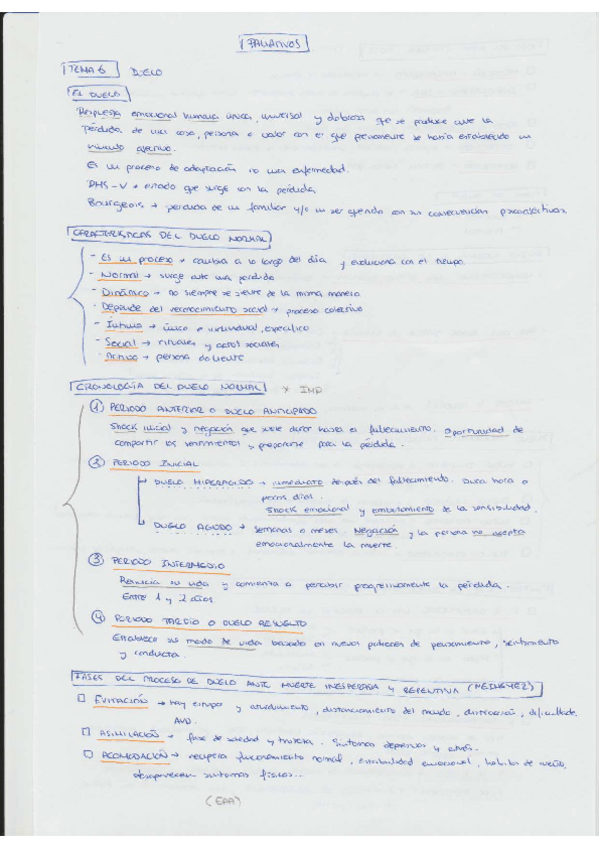 PALIATIVOS
TEMA 6 DUELO
EL DUELO
Respuesta emocional humana única, universal y dolorosa que se produce ante la
pérdida de una cosa, persona o valor con el que previamente se había establecido un
vínculo afectivo.
Es un proceso de adaptación no una enfermedad.
DMS-V → estado que surge con la pérdida
Bourgeois → pérdida de un familiar y/o un ser querido con sus consecuencias psicoafectivas.
CARACTERÍSTICAS DEL DUELO NORMAL
- Es un proceso → cambia a lo largo del día y evoluciona con el tiempo.
- Normal → surge ante una pérdida
- Dinámico → no siempre se siente de la misma manera
- Depende del reconocimiento social → proceso colectivo
- Íntimo → único e individual, específico
- Social → rituales y actos sociales
- Activo → persona doliente
CRONOLOGÍA DEL DUELO NORMAL * IMP
① PERIODO ANTERIOR O DUELO ANTICIPADO
Shock inicial y negación que suele durar hasta el fallecimiento. Oportunidad de
compartir los sentimientos y prepararse para la pérdida.
② PERIODO INICIAL
DUELO HIPERAGUDO → inmediato después del fallecimiento. Dura hora o
pocos días.
Shock emocional y embotamiento de la sensibilidad.
DUELO AGUDO → semanas o meses. Negación y la persona no acepta
emocionalmente la muerte
③ PERIODO INTERMEDIO
Reinicia su vida y comienza a percibir progresivamente la pérdida.
Entre 1 y 2 años
④ PERIODO TARDÍO O DUELO RESUELTO
Establece su modo de vida basado en nuevos patrones de pensamiento, sentimiento
y conducta.
FASES DEL PROCESO DE DUELO ANTE MUERTE INESPERADA Y REPENTINA
□ EVITACIÓN → hay estupor y aturdimiento, distanciamiento del mundo, distracción, dificultades
AVD.
□ ASIMILACIÓN → fase de soledad y tristeza. Síntomas depresivos y
□ ACOMODACIÓN → recupera funcionamiento normal, estabilidad emocional, hábitos de sueño,
desaparecen síntomas físicos...
(EAA)